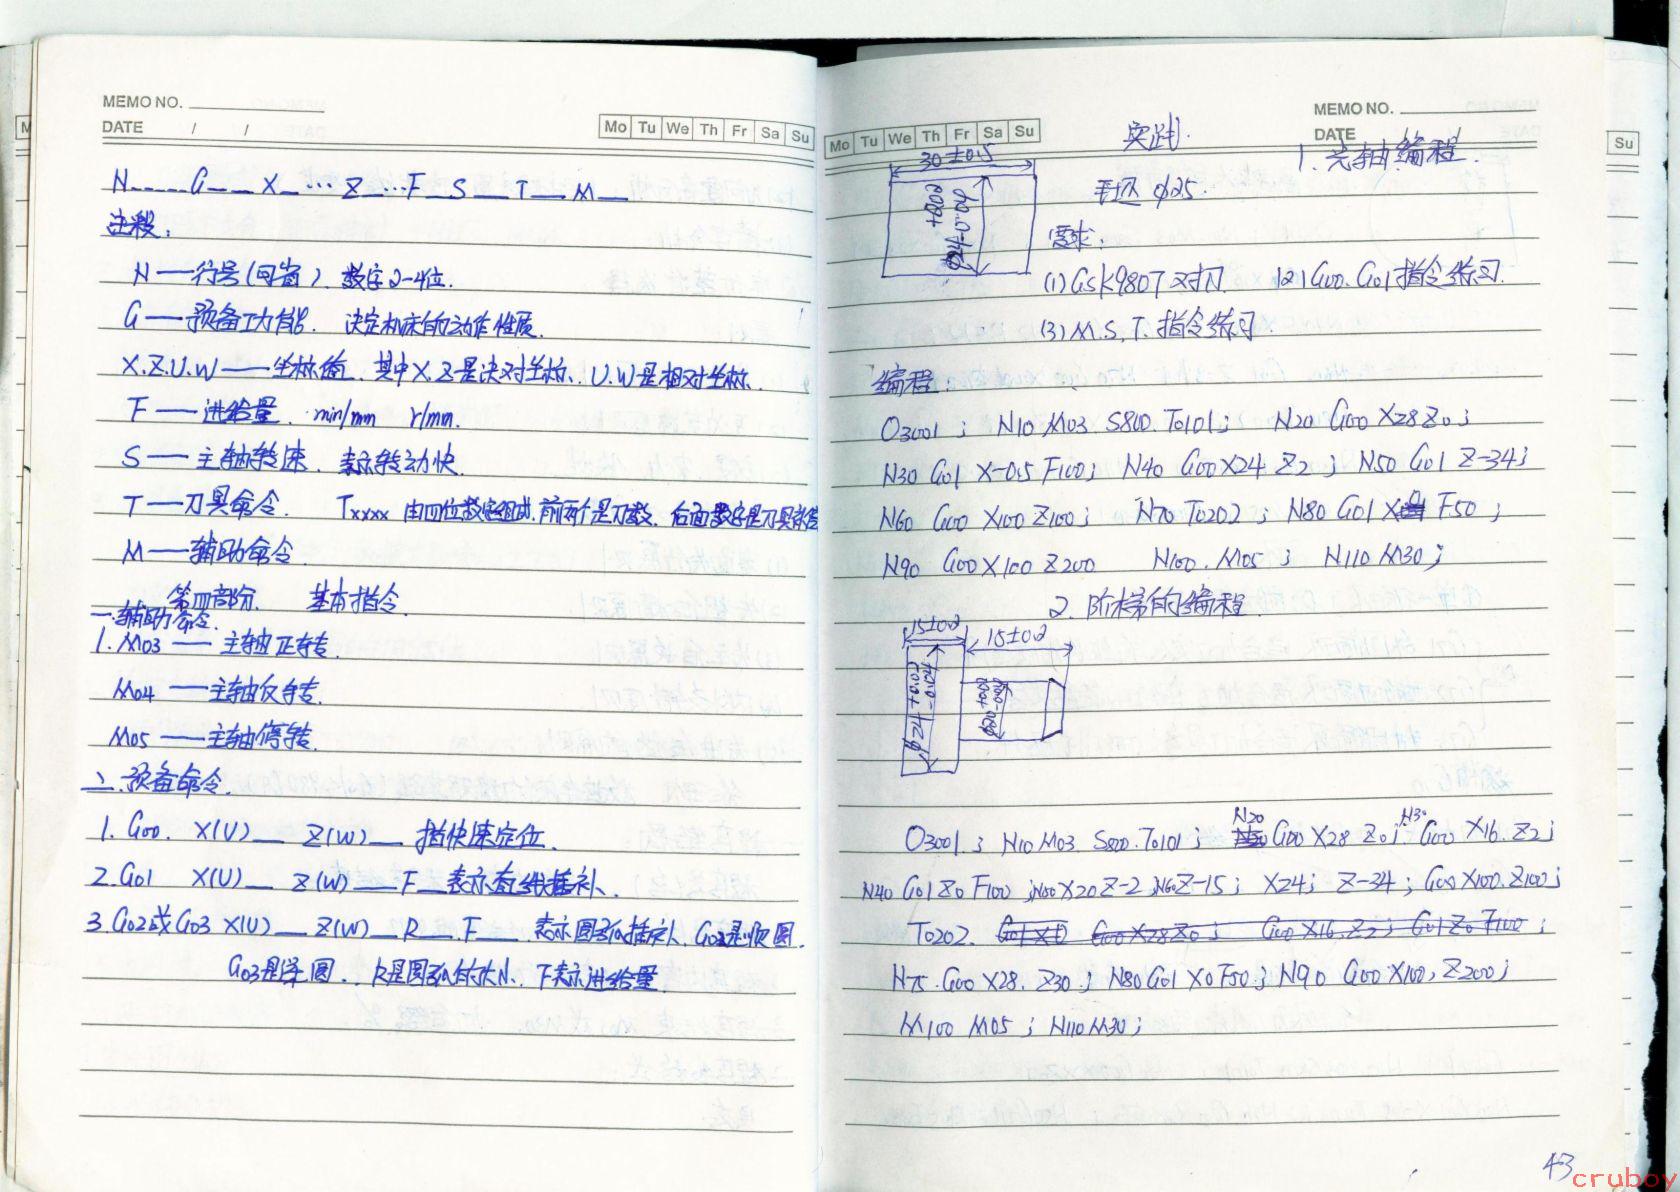 MEMO NO.
DATE / /
Mo Tu We Th Fr Sa Su
N____G___X_…Z_…F_S___T__M__
注释:
N——行号(可省).数字2-4位.
G——预备功能. 决定机床的动作性质.
X.Z.U.W——坐标值.其中X.Z是决对坐标、U.W是相对坐标.
F——进给量. min/mm r/mm.
S——主轴转速、表示转动快.
T——刀具命令. Txxxx 由四位数字组成.前两个是刀数.后面数字是刀具
M——辅助命令
第四部份. 基本指令.
一.辅助命令.
1.M03——主轴正转.
M04——主轴反转.
M05——主轴停转.
二.预备命令.
1.G00. X(U)__ Z(W)__ 指快速定位.
2.G01 X(U)__ Z(W)___F__表示直线插补、
3.G02或G03 X(U)__ Z(W)__R__.F___.表示圆弧插补、G02是顺圆.
G03是逆圆..R是圆弧的大小.F表示进给量.
MEMO NO.
DATE
Mo Tu We Th Fr Sa Su
Su
实践.
1.光轴编程.
30±0.5
毛坯 φ25.
φ24
需求:
(1)GSK980T对刀. (2)G00.G01指令练习.
(3)M.S.T.指令练习
编程:
O3001; N10 M03.S800.T0101; N20 G00 X28 Z0;
N30 G01 X-0.5 F100; N40 G00 X24 Z2; N50 G01 Z-34;
N60 G00 X100 Z100; N70 T0202; N80 G01 X0 F50;
N90 G00 X100 Z200 N100.M05; N110 M30;
2.阶梯的编程
15±0.2 15±0.2
φ24
O3001; N10 M03.S800.T0101; N20 G00 X28 Z0; N30 G00 X16.Z2;
N40 G01 Z0 F100; N50 X20 Z-2; N60 Z-15; X24; Z-34; G00 X100.Z100;
T0202. G01 X0 G00 X28 Z0; G00 X16.Z2; G01 Z0 F100;
N75.G00 X28. Z30.; N80 G01 X0 F50.; N90 G00 X100, Z200;
M100 M05; N110 M30;
43
cruboy